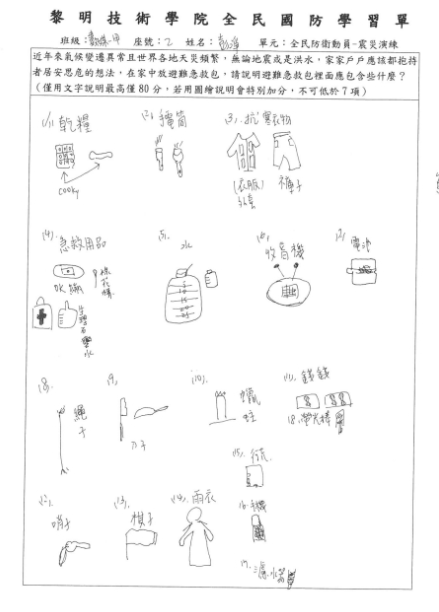 黎明技術學院全民國防學習單
班級: 座號:乙 姓名: 單元:全民防衛動員-震災演練
近年來氣候變遷異常且世界各地天災頻繁,無論地震或是洪水,家家戶戶應該都抱持
者居安思危的想法,在家中放避難急救包,請說明避難急救包裡面應包含些什麼?
(僅用文字說明最高僅80分,若用圖繪說明會特別加分,不可低於7項)
(1).乾糧
cooky
(2).
(3).抗寒衣物
(衣服)
褲子
(4).急救用品
OK繃
生理食鹽水
(5).水
(6).收音機
(7).電池
(8).繩子
(9).刀子
(10).蠟蛀
(11).錢錢
18.螢光棒
(12).哨子
(13).棋子
(14).雨衣
(15).
16.手機
17.